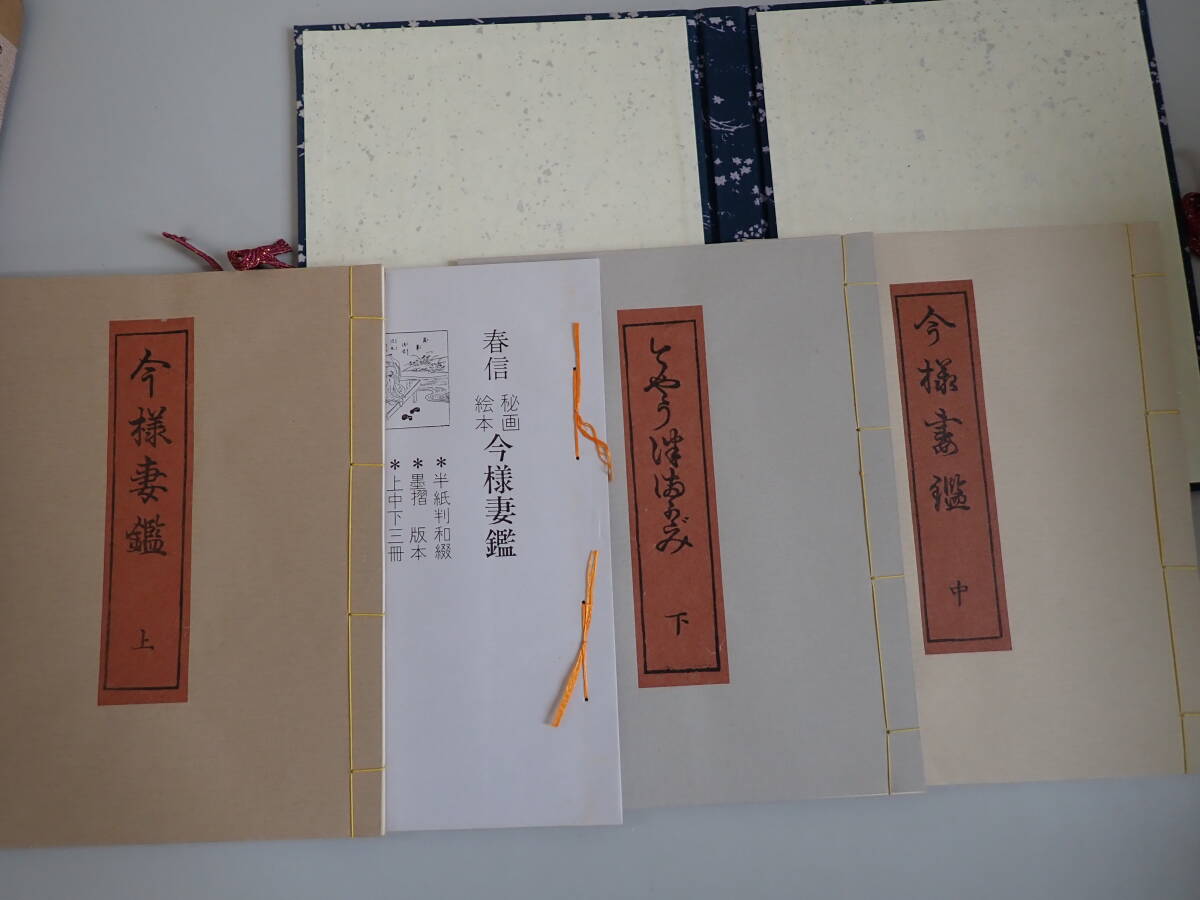 今様妻鑑
上
春信
秘画
絵本
今様妻鑑
＊半紙判和綴
＊墨摺　版本
＊上中下三冊
下
今様妻鑑
中